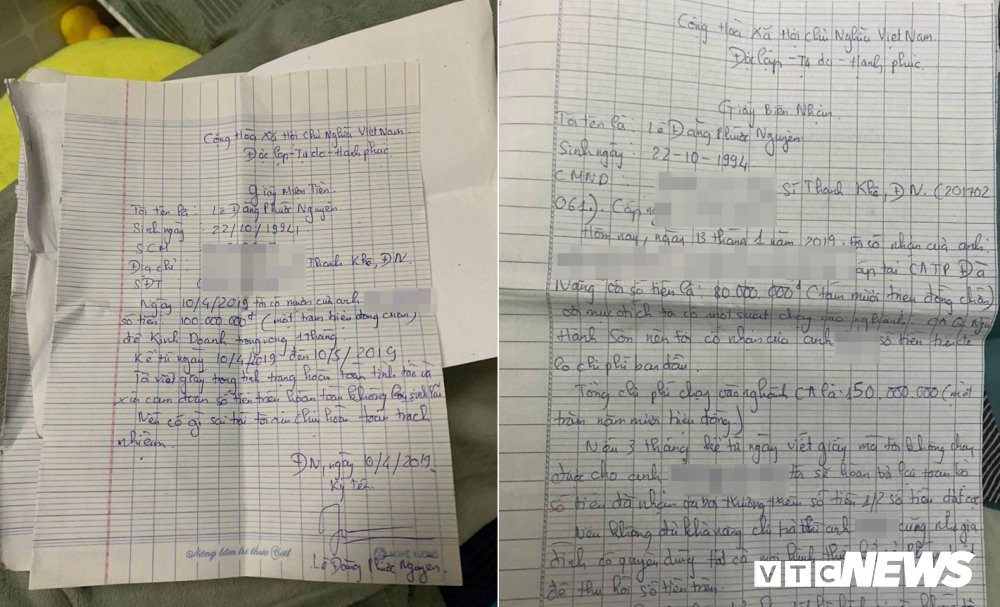 Cộng Hòa Xã Hội Chủ Nghĩa Việt Nam
Độc Lập - Tự do - Hạnh phúc
Giấy Mượn Tiền
Tôi tên là : Lê Đặng Phước Nguyên
Sinh ngày : 22/10/1994
SCM
Địa chỉ : Thanh Khê, ĐN.
SĐT
Ngày 10/4/2019 tôi có mượn của anh
số tiền 100.000.000đ (một trăm triệu đồng chẵn)
để Kinh Doanh trong vòng 1 tháng
Kể từ ngày 10/4/2019 đến 10/5/2019
Tôi viết giấy trong tình trạng hoàn toàn tỉnh táo và
xin cam đoan số tiền trên hoàn toàn không lấy sinh lãi
Nếu có gì sai trái tôi xin chịu hoàn toàn trách
nhiệm.
ĐN, ngày 10/4/2019
Ký Tên
Nâng tầm tri thức Việt
Lê Đặng Phước Nguyên
Cộng Hòa Xã Hội Chủ Nghĩa Việt Nam
Độc lập - Tự do - Hạnh phúc
Giấy Biên Nhận
Tôi tên là : Lê Đặng Phước Nguyên
Sinh ngày : 22-10-1994
CMND : Thanh Khê, ĐN. (201702
061). Cấp
Hôm nay, ngày 13 tháng 1 năm 2019 tôi có nhận của anh
tại CATP Đà
Nẵng với số tiền là: 80.000.000đ (tám mươi triệu đồng chẵn)
với mục đích tôi có một suất chạy vào nghành CA Q Ngũ
Hành Sơn nên tôi có nhận của anh số tiền trên để
lo chi phí ban đầu.
Tổng chi phí chạy vào nghành CA là: 150.000.000 (một
trăm năm mươi triệu đồng)
Nếu 3 tháng kể từ ngày viết giấy mà tôi không chạy
được cho anh tôi sẽ hoàn trả lại toàn bộ
số tiền đã nhận và bồi thường thêm số tiền 1/2 số tiền đặt cọc
Nếu không đủ khả năng chi trả thì anh cũng như gia
đình có quyền dùng tất cả mọi hình thức
để thu hồi số tiền trên
VTC NEWS